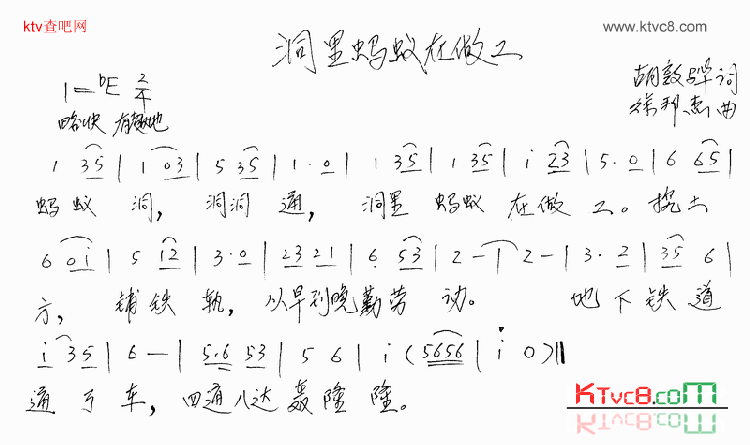 ktv查吧网 www.ktvc8.com
洞里蚂蚁在做工
1=bE 2/4 胡敦骅词
略快 有趣地 曲
1 35 | 1 03 | 5 35 | 1·0 | 1 35 | 1 35 | i 23 | 5·0 | 6 65 |
蚂蚁 洞, 洞洞 通, 洞里 蚂蚁 在做 工。 挖土
6 0i | 5 i2 | 3·0 | 23 21 | 6 53 | 2 — | 2 — | 3·2 | 35 6 |
方, 铺铁 轨, 从早到晚勤劳 动。 地下铁道
i 35 | 6 — | 5·6 53 | 5 6 | i (5656 | i 0) ‖
通了车, 四通八达轰隆隆。
KTvc8.com